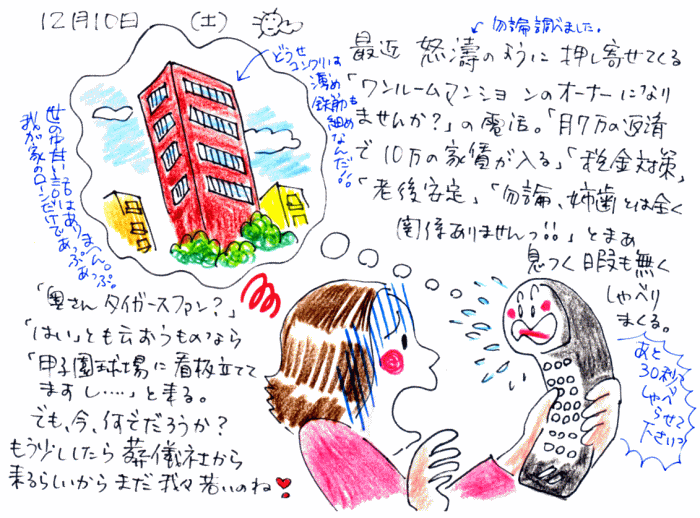 12月10日 (土)
勿論調べました。
最近 怒濤のように 押し寄せてくる
「ワンルームマンションのオーナーになり
ませんか?」の電話。「月7万の返済
で10万の家賃が入る」「税金対策」
「老後安定」「勿論、姉歯とは全く
関係ありませんっ!!」とまぁ
息つく暇も無く
しゃべり
まくる。
どうせ
コンクリは
薄め、
鉄筋も
細め
なんだ!!
世の中甘い話はありませ〜ん。
我が家のローンだけであっぷあっぷ。
あと
30秒で
しゃべ
らせて
下さいっ
「奥さん タイガースファン?」
「はい」とも云おうものなら
「甲子園球場に看板立てて
ますし....」と来る。
でも、今、何でだろうか?
もう少ししたら葬儀社から
来るらしいから まだ我々若いのね